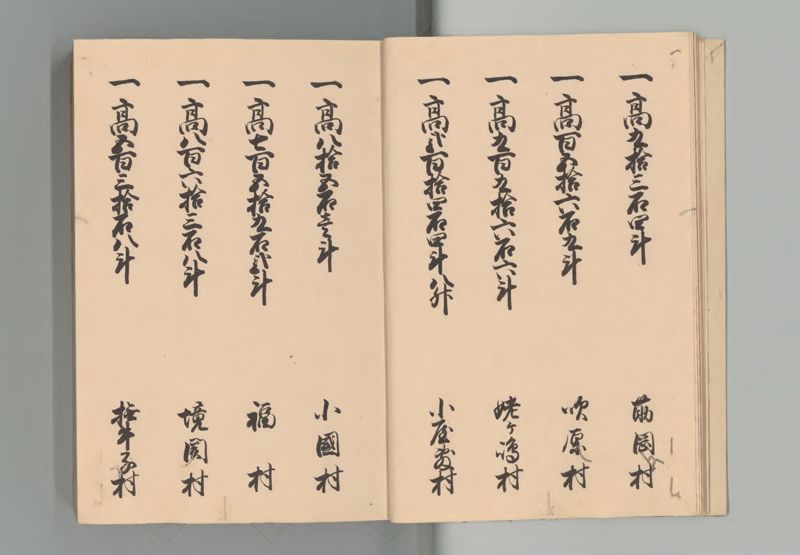 一高九拾三石四斗 苗岡村
一高百五拾六石九斗 吹屋村
一高九百九拾六石六斗 姥ヶ嶋村
一高弐百拾四石四斗八升 小屋敷村
一高八拾五石壱斗 小國村
一高七百五拾五石弐斗 福村
一高八百六拾三石八斗 境関村
一高五百三拾石八斗 村